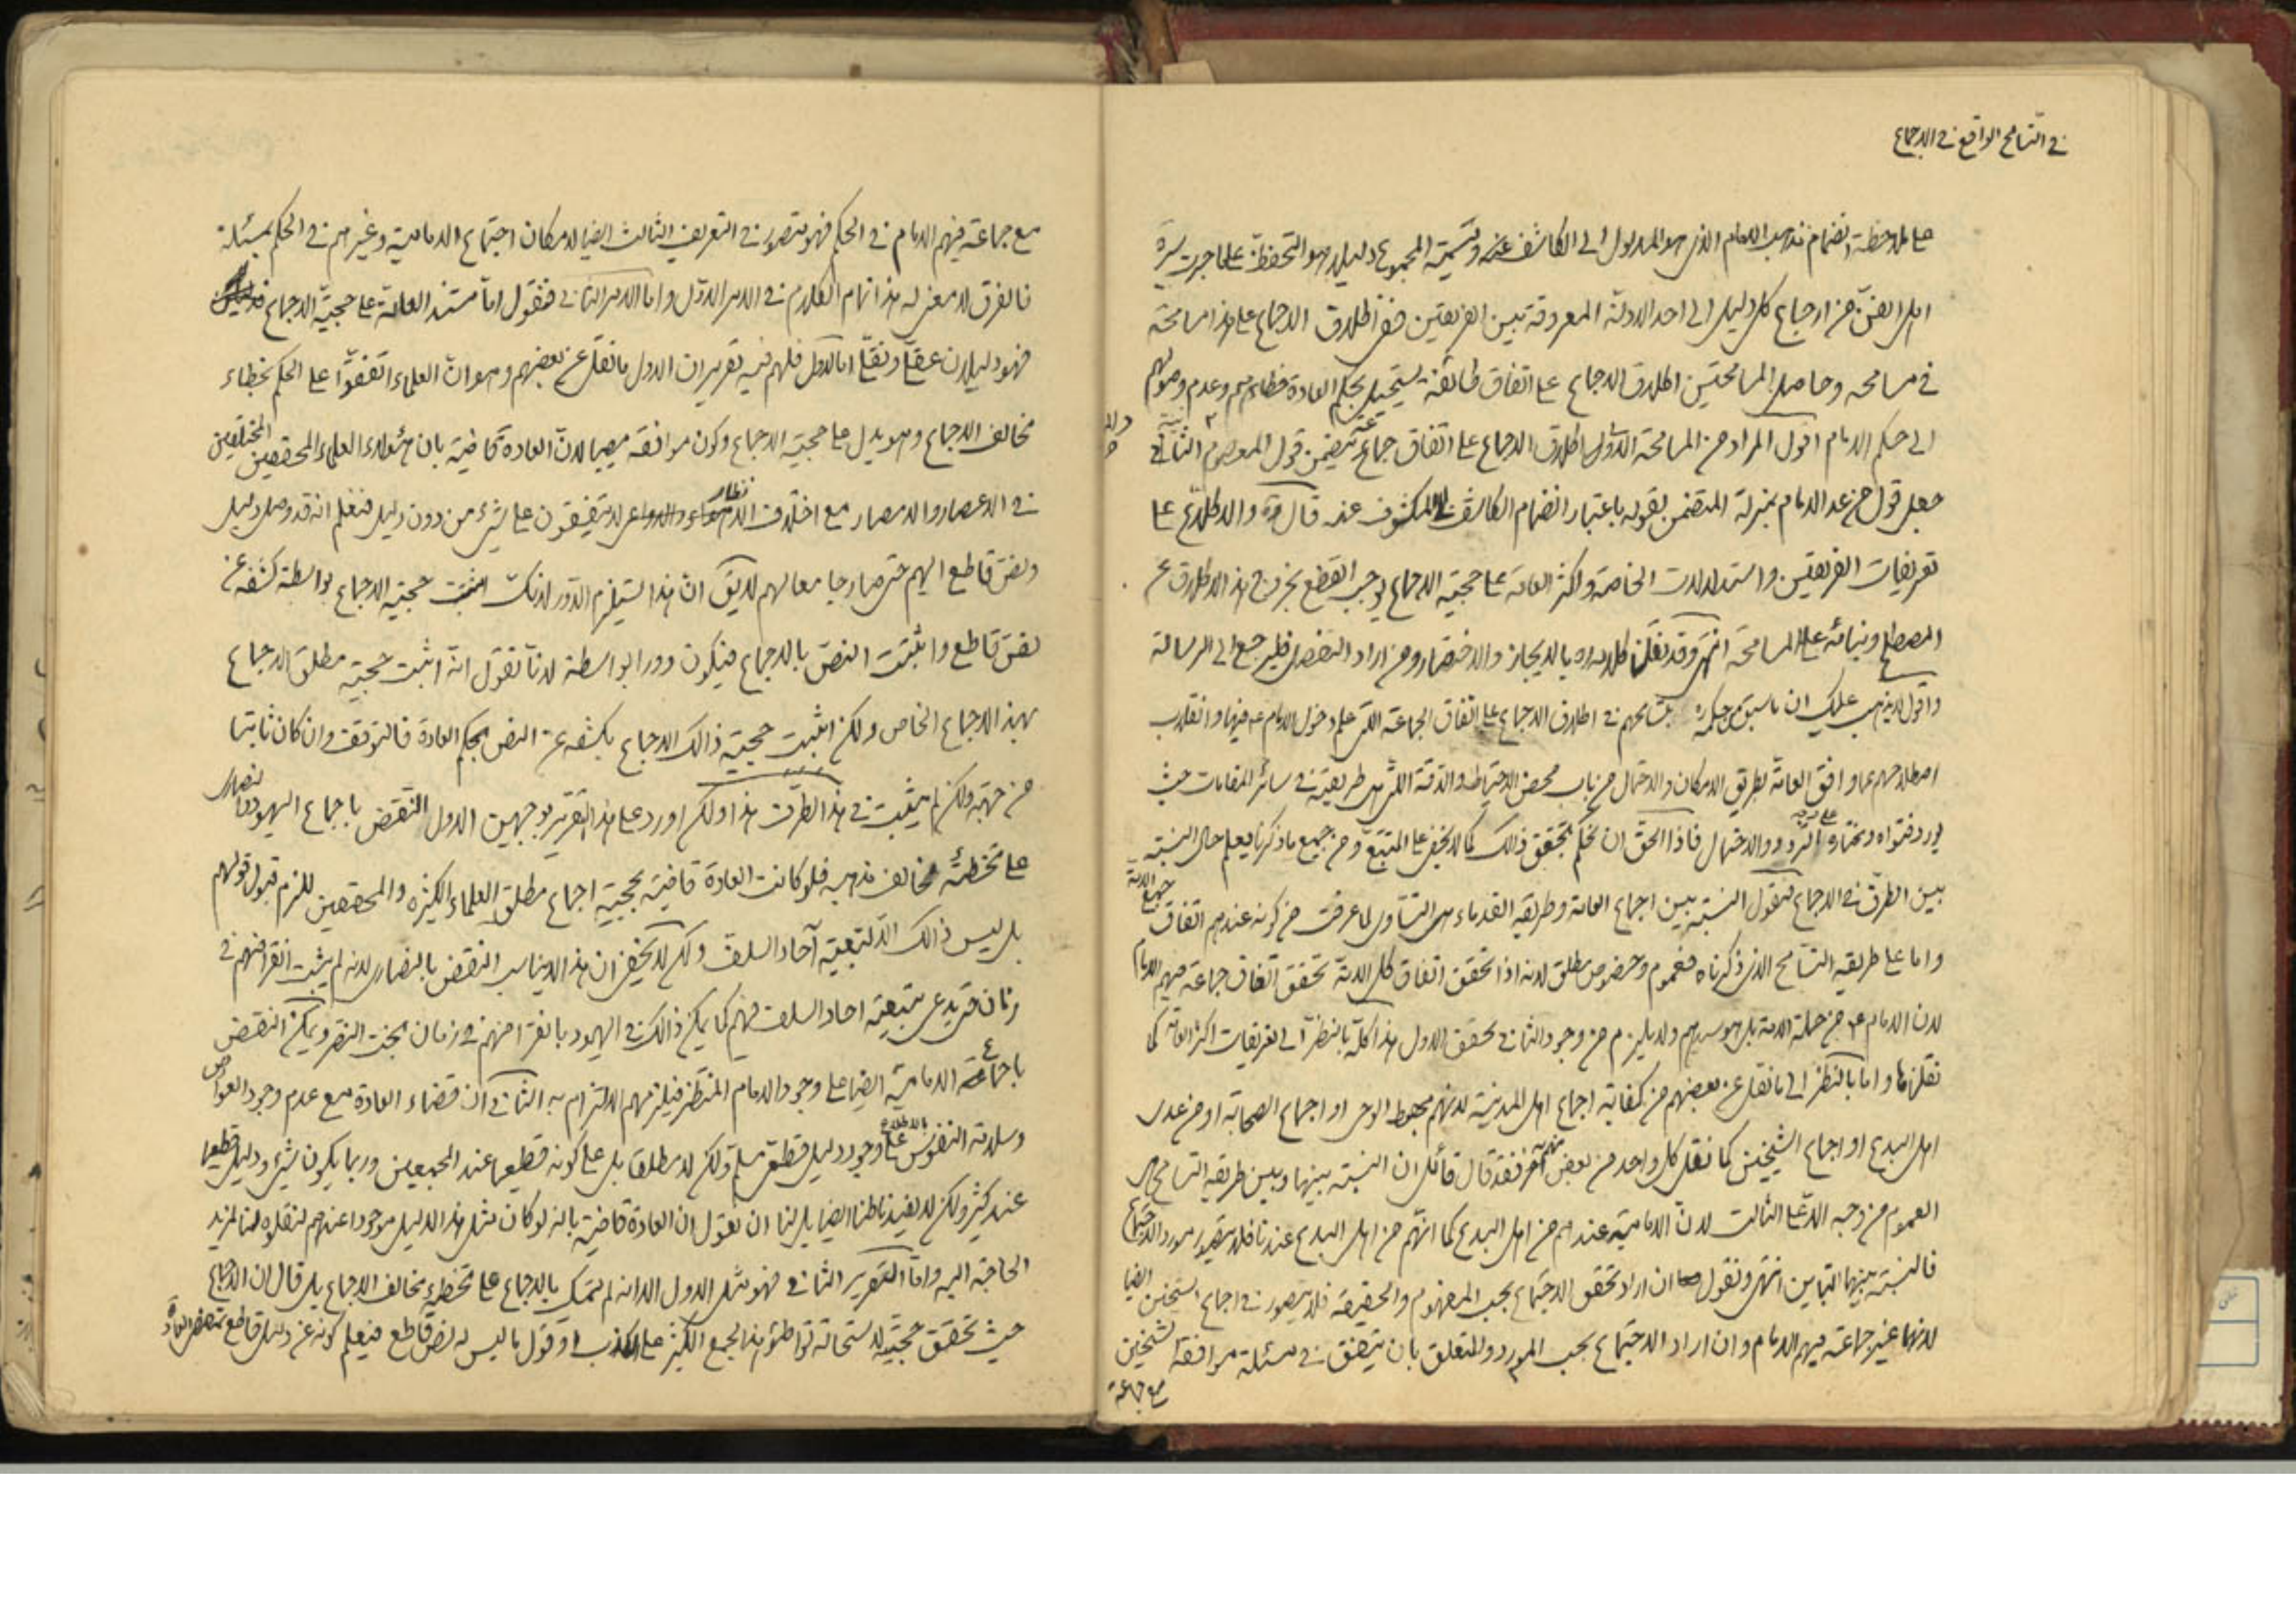 في التسامح الواقع في الاجماع
على ملاحظة انضمام مذهب الامام الذي هو المدلول الى الكاشف عنه وتسمية المجموع دليلا هو التحفظ على ما جرت سيرة
اهل الفن من ارجاع كل دليل الى احد الادلة المعروفة بين الفريقين ففي اطلاق الاجماع على هذا مسامحة
في مسامحة وحاصل المسامحتين اطلاق الاجماع على اتفاق طائفة يستحيل بحكم العادة خطائهم وعدم وصولهم
الى حكم الامام اقول المراد من المسامحة الاولى اطلاق الاجماع على اتفاق جماعة يتضمن قول المعصوم الثانية
جعل قول من عد الامام بمنزلة المتضمن بقوله باعتبار انضمام الكاشف للمكشوف عنه قال ره والاطلاع على
تعريفات الفريقين واستدلالات الخاصة واكثر العامة على حجية الاجماع يوجب القطع بخروج هذا الاطلاق عن
المصطلح وبنائه على المسامحة انتهى وقد نقلنا كلامه ره بالايجاز والاختصار ومن اراد التفصيل فليرجع الى الرسالة
واقول لا يذهب عليك ان ما سبق من حكمه ره بتسامحهم في اطلاق الاجماع على اتفاق الجماعة التي علم دخول الامام ع فيها وانقلاب
اصطلاحهم عما وافق العامة بطريق الامكان والاحتمال من باب محض الاحتياط والدقة التي هي طريقته في سائر المقامات حيث
يورد فتواه ومختاره على وجه التردد والاحتمال فاذا الحق ان نحكم بتحقق ذلك كما لا يخفى على المتتبع ومن جميع ما ذكرنا يعلم حال النسبة
بين الطرق في الاجماع فنقول النسبة بين اجماع العامة وطريقة القدماء هي التساوي لما عرفت من كونه عندهم اتفاق جميع الامة
واما على طريقة التسامح الذي ذكرناه فعموم وخصوص مطلق لانه اذا تحقق اتفاق كل الامة تحقق اتفاق جماعة فيهم الامام
لان الامام ع من جملة الامة بل هو سيدهم ولا يلزم من وجود الثاني تحقق الاول هذا كله بالنظر الى تعريفات اكثر العامة كما
نقلناها واما بالنظر الى ما نقل عن بعضهم من كفاية اجماع اهل المدينة لانهم مهبط الوحي او اجماع الصحابة او من عدى
اهل البدع او اجماع الشيخين كما نقل كل واحد من بعض منهم فقد قال قائل ان النسبة بينها وبين طريقة التسامح هي
العموم من وجه الا على الثالث لان الامامية عندهم من اهل البدع كما انهم من اهل البدع عندنا فلا يتصور مورد الاجتماع
فالنسبة بينهما التباين انتهى ونقول ان اراد تحقق الاجتماع بحسب المفهوم والحقيقة فلا يتصور في اجماع الشيخين ايضا
لانهما غير جماعة فيهم الامام وان اراد الاجتماع بحسب المورد والمتعلق بان يتفق في مسئلة موافقة الشيخين
مع جماعة
مع جماعة فيهم الامام في الحكم فهو يتصور في التعريف الثالث ايضا لامكان اجتماع الامامية وغيرهم في الحكم بمسئلة
فالفرق لا معنى له هذا تمام الكلام في الامر الاول واما الامر الثاني فنقول اما مستند العامة على حجية الاجماع
فهو دليلان عقلي ونقلي اما الاول فلهم فيه تقريران الاول ما نقل عن بعضهم وهو ان العلماء اتفقوا على الحكم بخطاء
مخالف الاجماع وهو يدل على حجية الاجماع وكون موافقه مصيبا لان العادة قاضية بان هؤلاء العلماء المحققين المختلفين
في الاعصار والامصار مع اختلاف الانظار لا يتفقون على شيء من دون دليل فنعلم انه قد وصل دليل
ونص قاطع اليهم حتى صار جامعا لهم لا يق ان هذا يستلزم الدور لانك اثبتت حجية الاجماع بواسطة كشفه عن
نص قاطع واثبتت النص بالاجماع فيكون دورا بواسطة لانا نقول انه اثبت حجية مطلق الاجماع
بهذا الاجماع الخاص ولكن اثبت حجية ذالك الاجماع بكشفه عن النص بحكم العادة فالتوقف وان كان ثابتا
من جهة ولكن لم يثبت في هذا الطرف هذا ولكن اورد على هذا التقرير بوجهين الاول النقض باجماع اليهود والنصارى
على تخطئة مخالف مذهبه فلو كانت العادة قاضية بحجية اجماع مطلق العلماء الكثيرة والمحققين للزم قبول قولهم
بل ليس ذالك الا لتبعية آحاد السلف ولكن لا يخفى ان هذا لا يناسب النقض بالنصارى لانه لم يثبت انقراضهم في
زمان حتى يدعى بتبعية احاد السلف فيهم كما يمكن ذالك في اليهود بانقراضهم في زمان بخت النصر ويمكن النقض
باجماع الامامية ايضا على وجود الامام المنتظر فيلزمهم الالتزام به الثاني ان قضاء العادة مع عدم وجود العوارض
وسلامة النفوس بالاطلاع على وجود دليل قطعي مسلم ولكن لا مطلقا بل على كونه قطعيا عند المجمعين وربما يكون شيء ودليل قطعيا
عند كثير ولكن لا يفيد ظنا ايضا بل لنا ان نقول ان العادة قاضية بانه لو كان مثل هذا الدليل موجودا عندهم لنقلوه لنا لمزيد
الحاجة اليه واما التقرير الثاني فهو مثل الاول الا انه لم يتمسك بالاجماع على تخطئة مخالف الاجماع بل قال ان الاجماع
حيث تحقق حجية لاستحالة تواطئو هذا الجمع الكثير على الكذب او قول ما ليس له نص قاطع فيعلم كونه عن دليل قاطع بمقتضى العادة